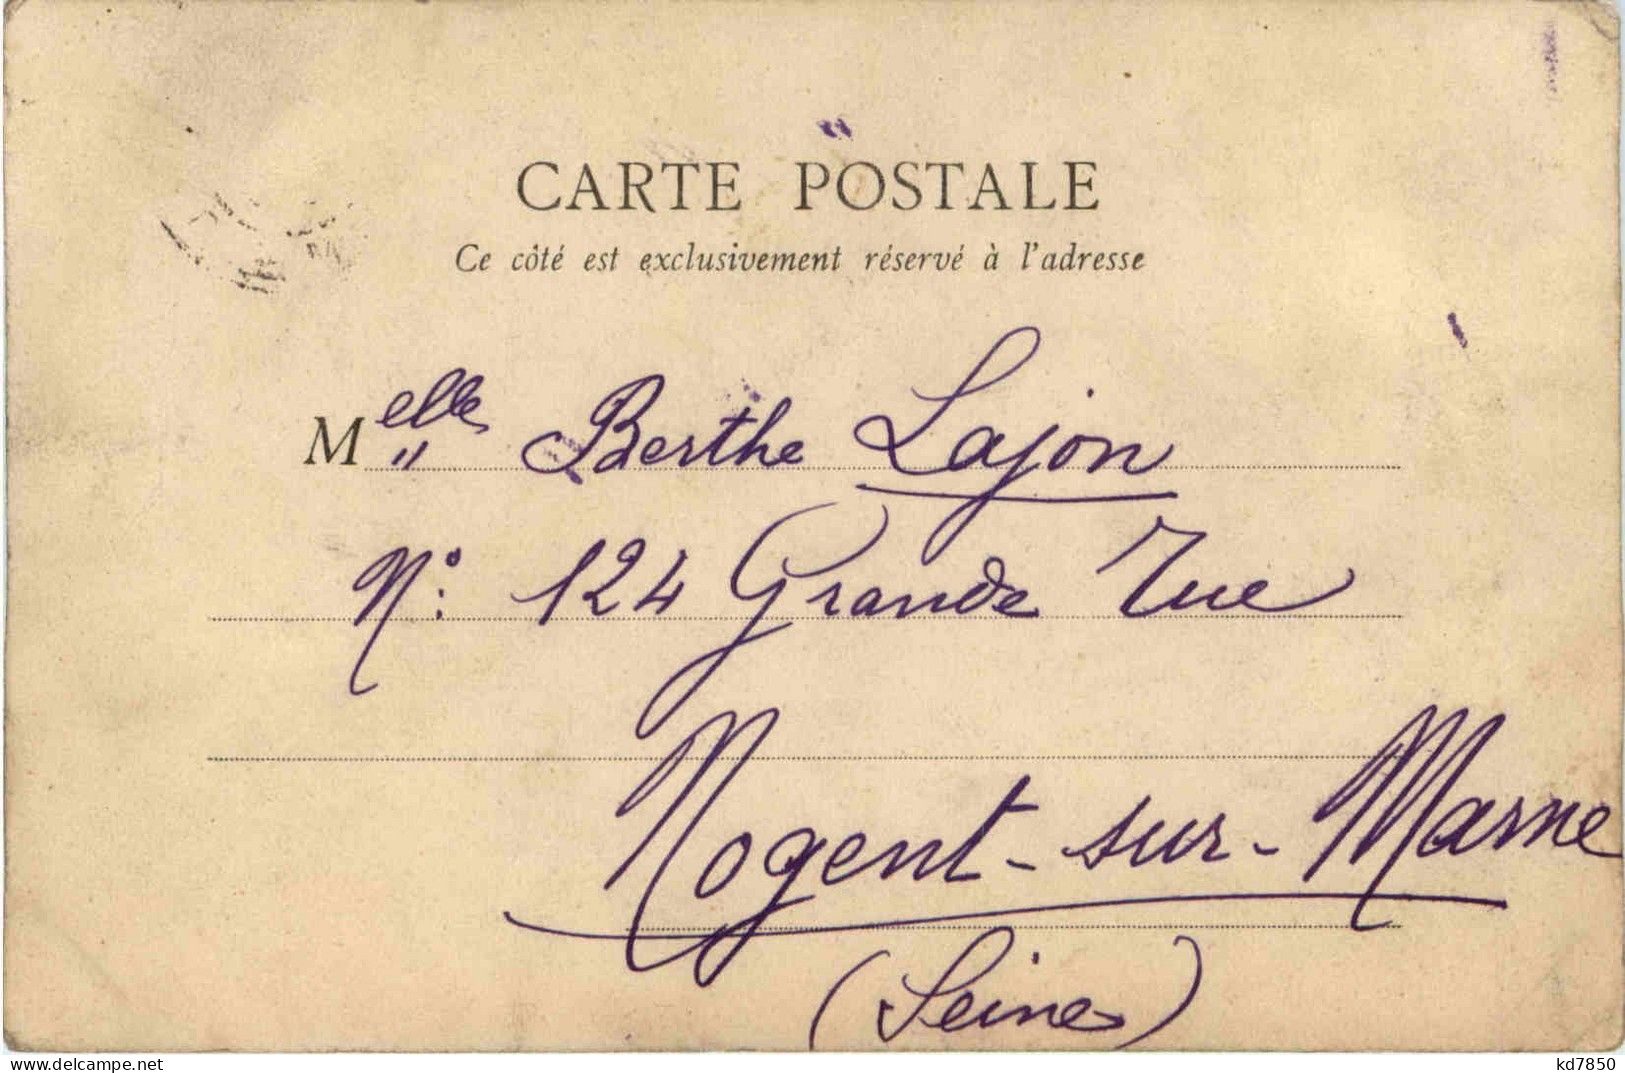 CARTE POSTALE
Ce côté est exclusivement réservé à l'adresse
Melle Berthe Lajon
N°: 124 Grande rue
Nogent-sur-Marne
(Seine)
www.delcampe.net
kd7850